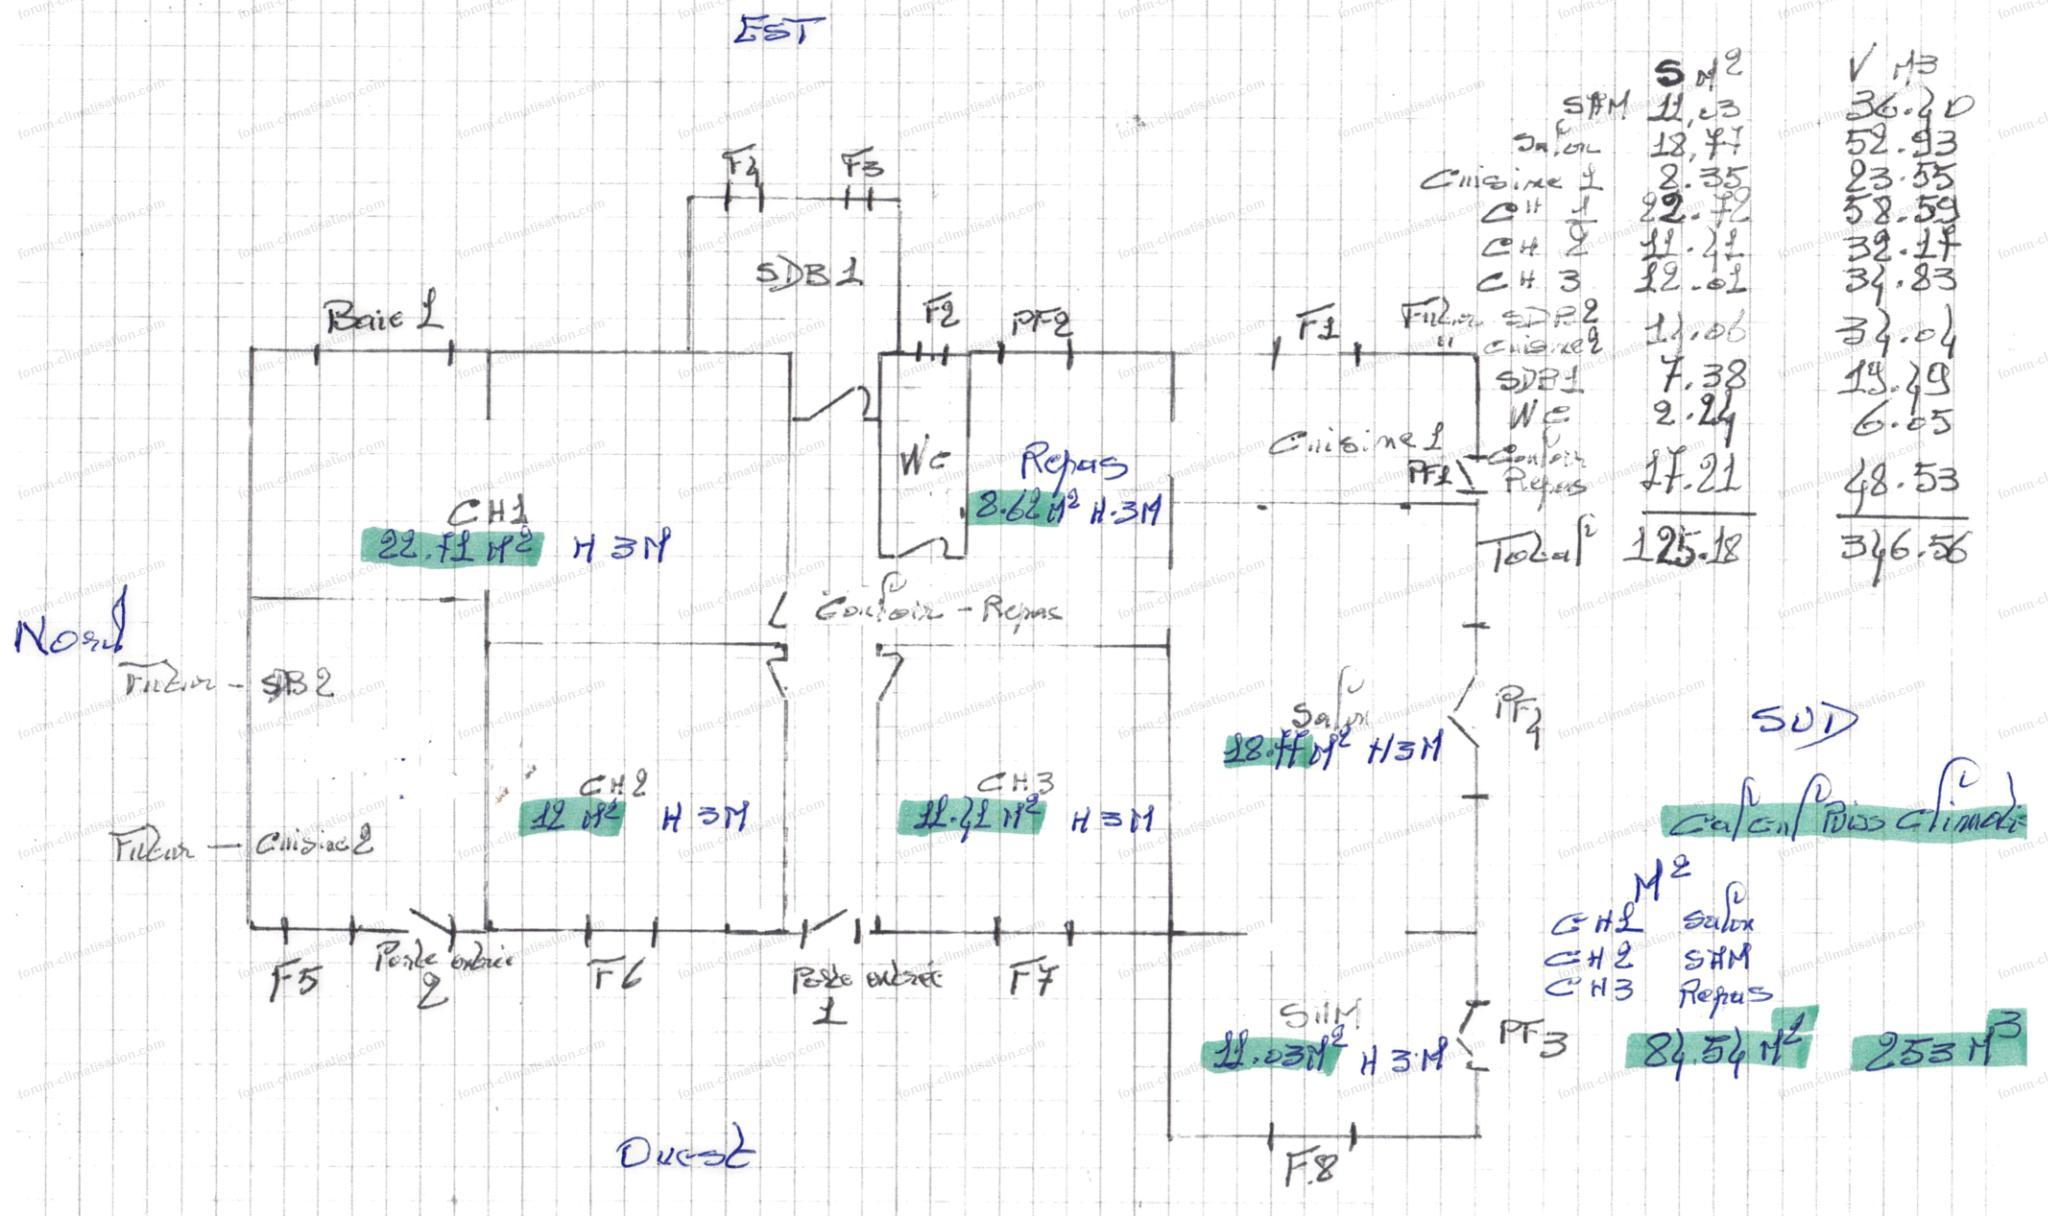 EST
S M2 V M3
SAM 11,03 36.20
Salon 18,77 52.93
Cuisine 1 8.35 23.55
CH 1 22.72 58.59
CH 2 11.41 32.17
CH 3 12.01 34.83
Futur SDB2
cuisine2 12.06 34.04
SDB1 7.38 19.49
WC 2.24 6.05
Couloir
Repas 17.21 48.53
Total 125.18 346.56
F4 F3
SDB1
Baie 1 F2 PF2 F1
WC Repas Cuisine 1
8.62 M2 H.3M
PF1
CH1
22.71 M2 H 3M
Couloir - Repas
Nord
Futur - SDB2
Salon
18.77 M2 H3M
PF4
SUD
CH2
12 M2 H 3M
CH3
11.41 M2 H 3M
Futur - Cuisine2
Calcul Climati
M2
CH1 Salon
CH2 SAM
CH3 Repas
84.54 M2 253 M3
F5 Porte entrée
2
F6
Porte entrée
1
F7
SAM
11.03M2 H 3.M
PF3
F.8
Ouest
forum-climatisation.com